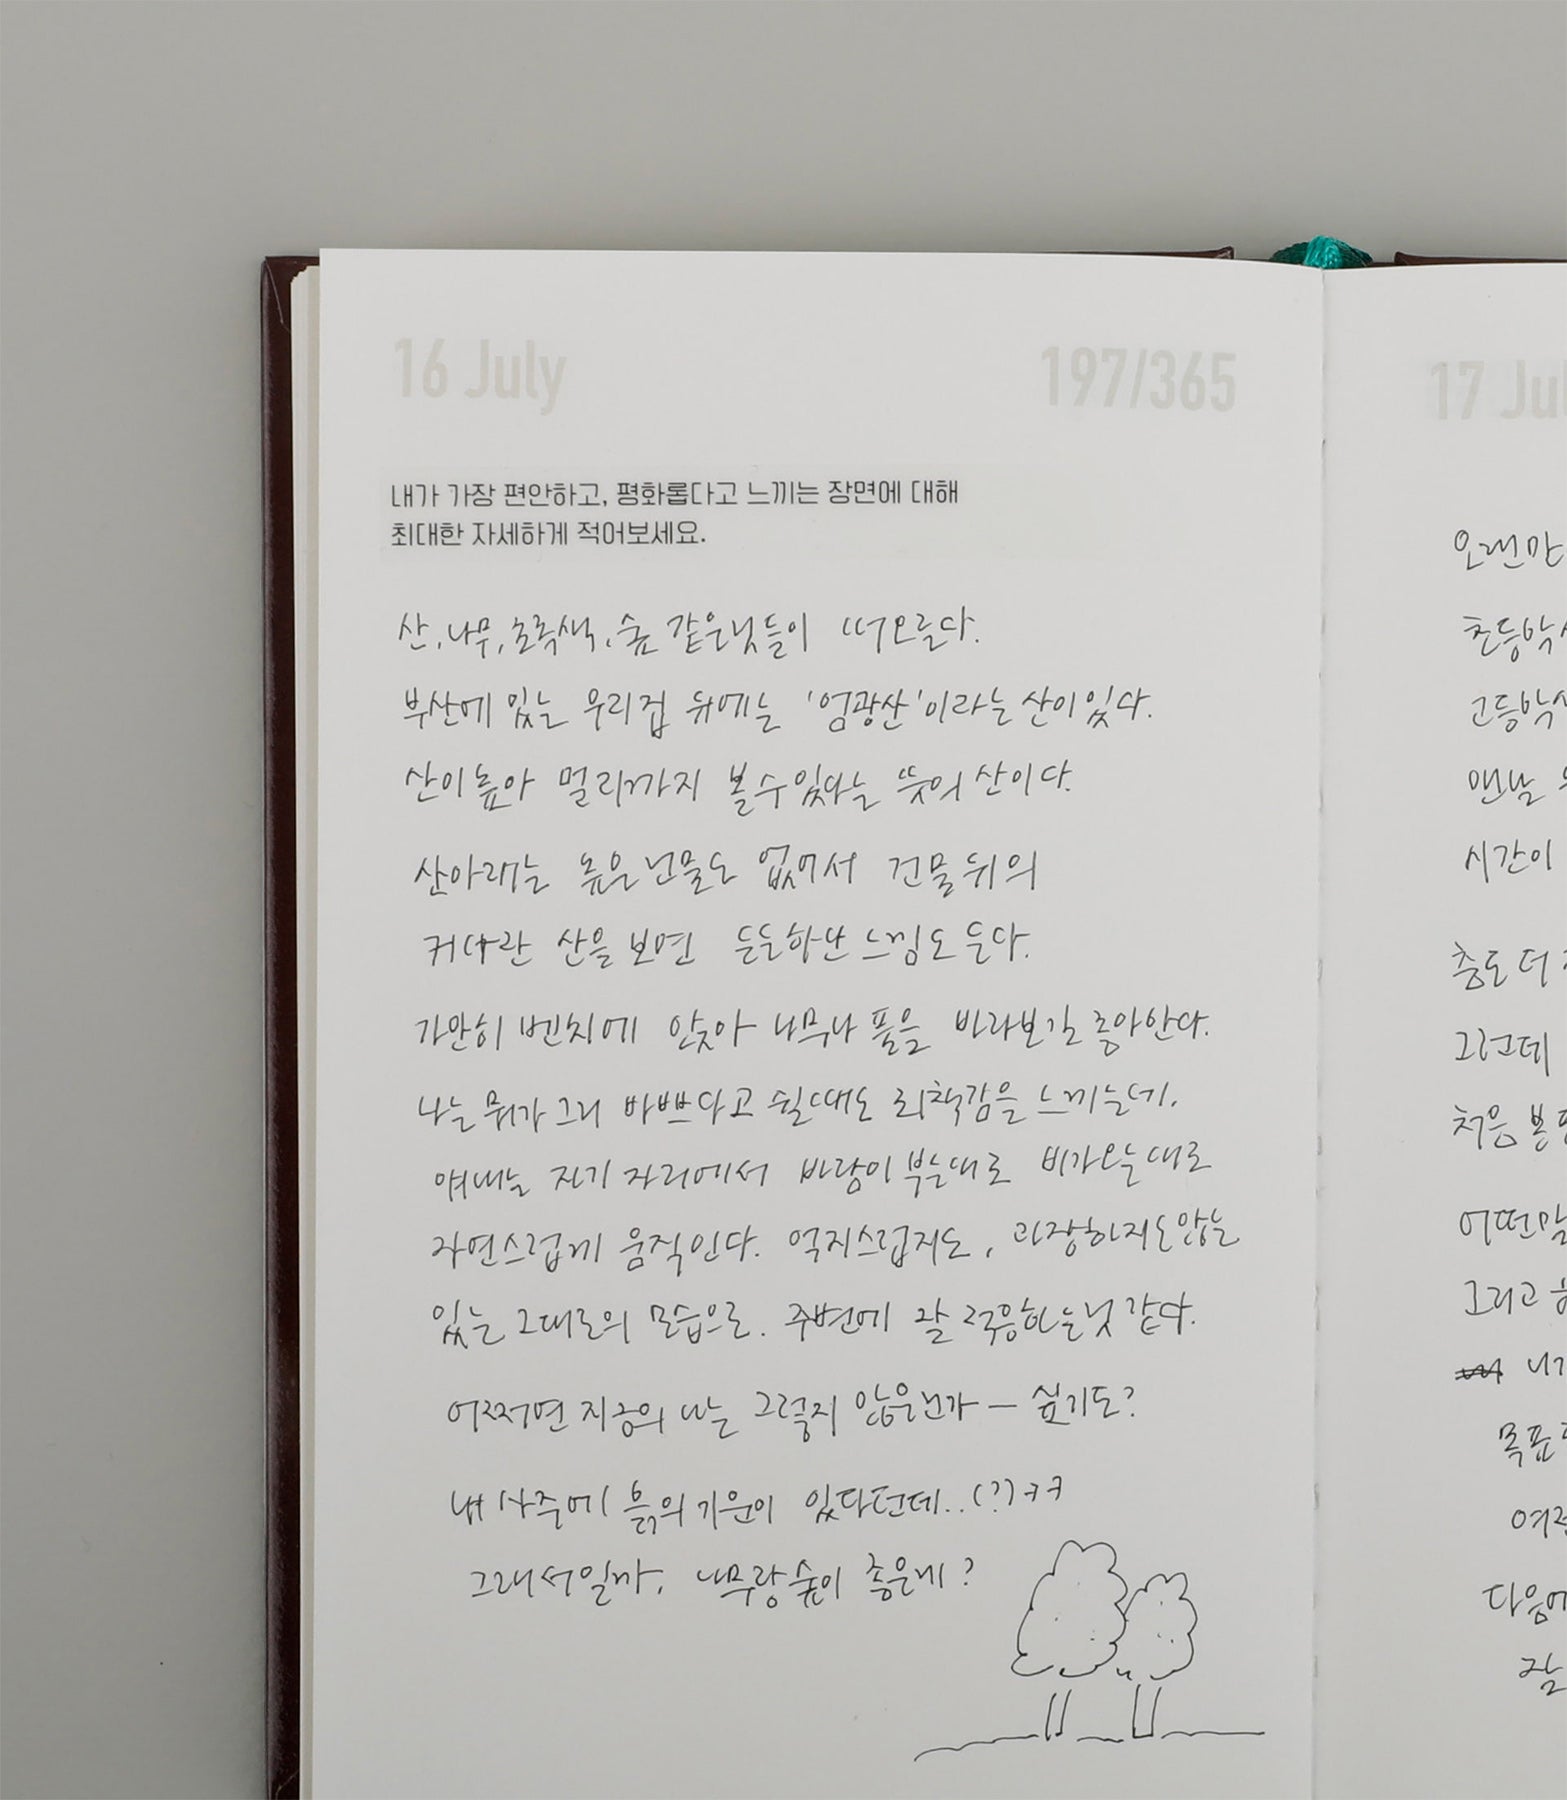 16 July
197/365
내가 가장 편안하고, 평화롭다고 느끼는 장면에 대해
최대한 자세하게 적어보세요.
산, 나무, 초록색, 숲 같은 것들이 떠오른다.
부산에 있는 우리집 뒤에는 '엄광산'이라는 산이 있다.
산이 높아 멀리까지 볼 수 있다는 뜻의 산이다.
산아래는 높은 건물도 없어서 건물 뒤의
커다란 산을 보면 든든한 느낌도 든다.
가만히 벤치에 앉아 나무나 풀을 바라보길 좋아한다.
나는 뭐가 그리 바쁘다고 쉴때도 죄책감을 느끼는데,
얘네는 자기 자리에서 바람이 부는대로 비가 오는대로
자연스럽게 움직인다. 억지스럽지도, 과장하지도 않는
있는 그대로의 모습으로. 주변에 잘 적응하는 것 같다.
어쩌면 지금의 나는 그렇지 않은건가 — 싶기도?
내 사주에 흙의 기운이 있다던데..(?)ㅋㅋ
그래서일까, 나무랑 숲이 좋은게?
17 Jul
오랜만
초등학
고등학
맨날
시간이
춤도 더
그런데
처음 본
어떤
그리고
내가
목표
여전
다음에
잘